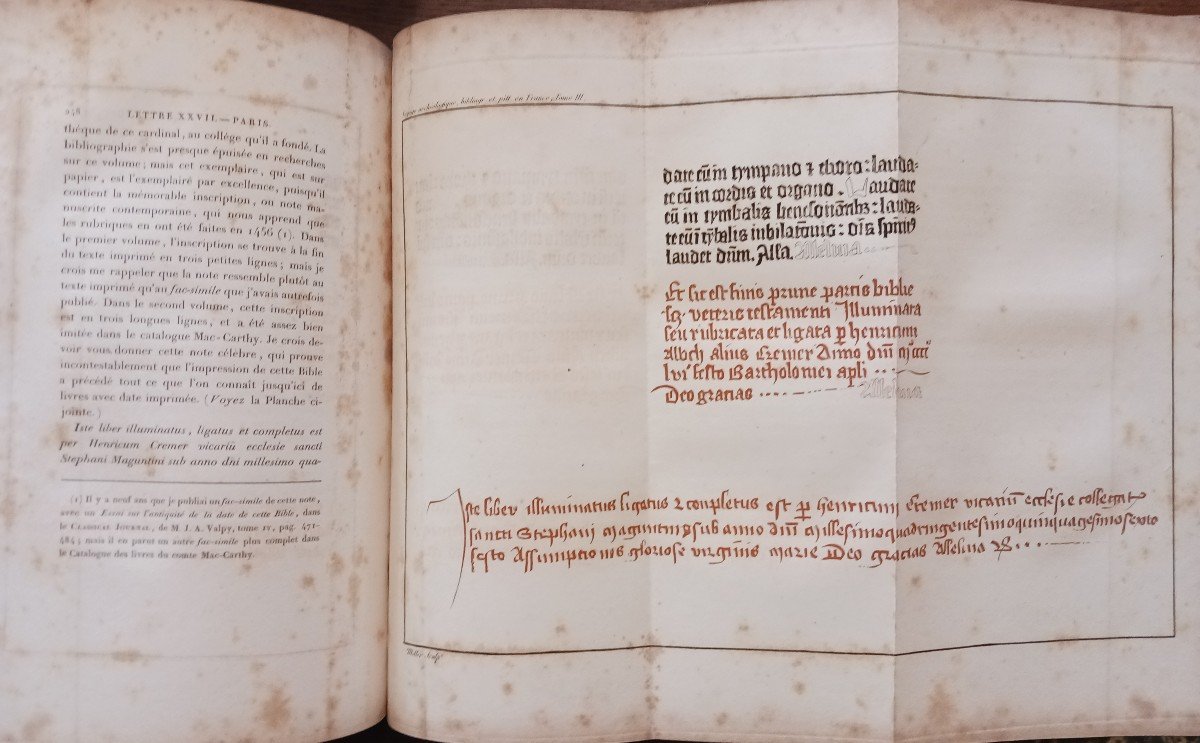 248 LETTRE XXVII.—PARIS.
thèque de ce cardinal, au collége qu'il a fondé. La
bibliographie s'est presque épuisée en recherches
sur ce volume; mais cet exemplaire, qui est sur
papier, est l'exemplaire par excellence, puisqu'il
contient la mémorable inscription, ou note ma-
nuscrite contemporaine, qui nous apprend que
les rubriques en ont été faites en 1456 (1). Dans
le premier volume, l'inscription se trouve à la fin
du texte imprimé en trois petites lignes; mais je
crois me rappeler que la note ressemble plutôt au
texte imprimé qu'au fac-simile que j'avais autrefois
publié. Dans le second volume, cette inscription
est en trois longues lignes, et a été assez bien
imitée dans le catalogue Mac-Carthy. Je crois de-
voir vous donner cette note célèbre, qui prouve
incontestablement que l'impression de cette Bible
a précédé tout ce que l'on connaît jusqu'ici de
livres avec date imprimée. (Voyez la Planche ci-
jointe.)
Iste liber illuminatus, ligatus et completus est
per Henricum Cremer vicariū ecclesie sancti
Stephani Maguntini sub anno dni millesimo qua-
(1) Il y a neuf ans que je publiai un fac-simile de cette note,
avec un Essai sur l'antiquité de la date de cette Bible, dans
le CLASSICAL JOURNAL, de M. J. A. Valpy, tome IV, pag. 471-
484; mais il en parut un autre fac-simile plus complet dans
le Catalogue des livres du comte Mac-Carthy.
bibliogr. et pitt. en France, Tome III
date eū in tympano ⁊ choro: lauda-
te eū in cordis et organo. Laudate
eū in cymbalis benesonātibꝫ: lauda-
te eū ī cȳbalis iubilatōnis: ōis spirit9
laudet dūm. Alla. Alleluia
Et sic est finis prime partis biblie
scꝫ veteris testamenti Illuminata
seu rubricata et ligata p henricum
Albch alius Cremer Anno dnī
lvi festo Bartholomei apli
Deo gracias Alleluia
Iste liber illuminatus ligatus ⁊ completus est p henricum Cremer vicariū ecclesie collegat
sancti Stephani maguntini sub anno dnī millesimo quadringentesimo quinquagesimo sexto
festo Assumptionis gloriose virginis marie Deo gracias Alleluia
Sculpt